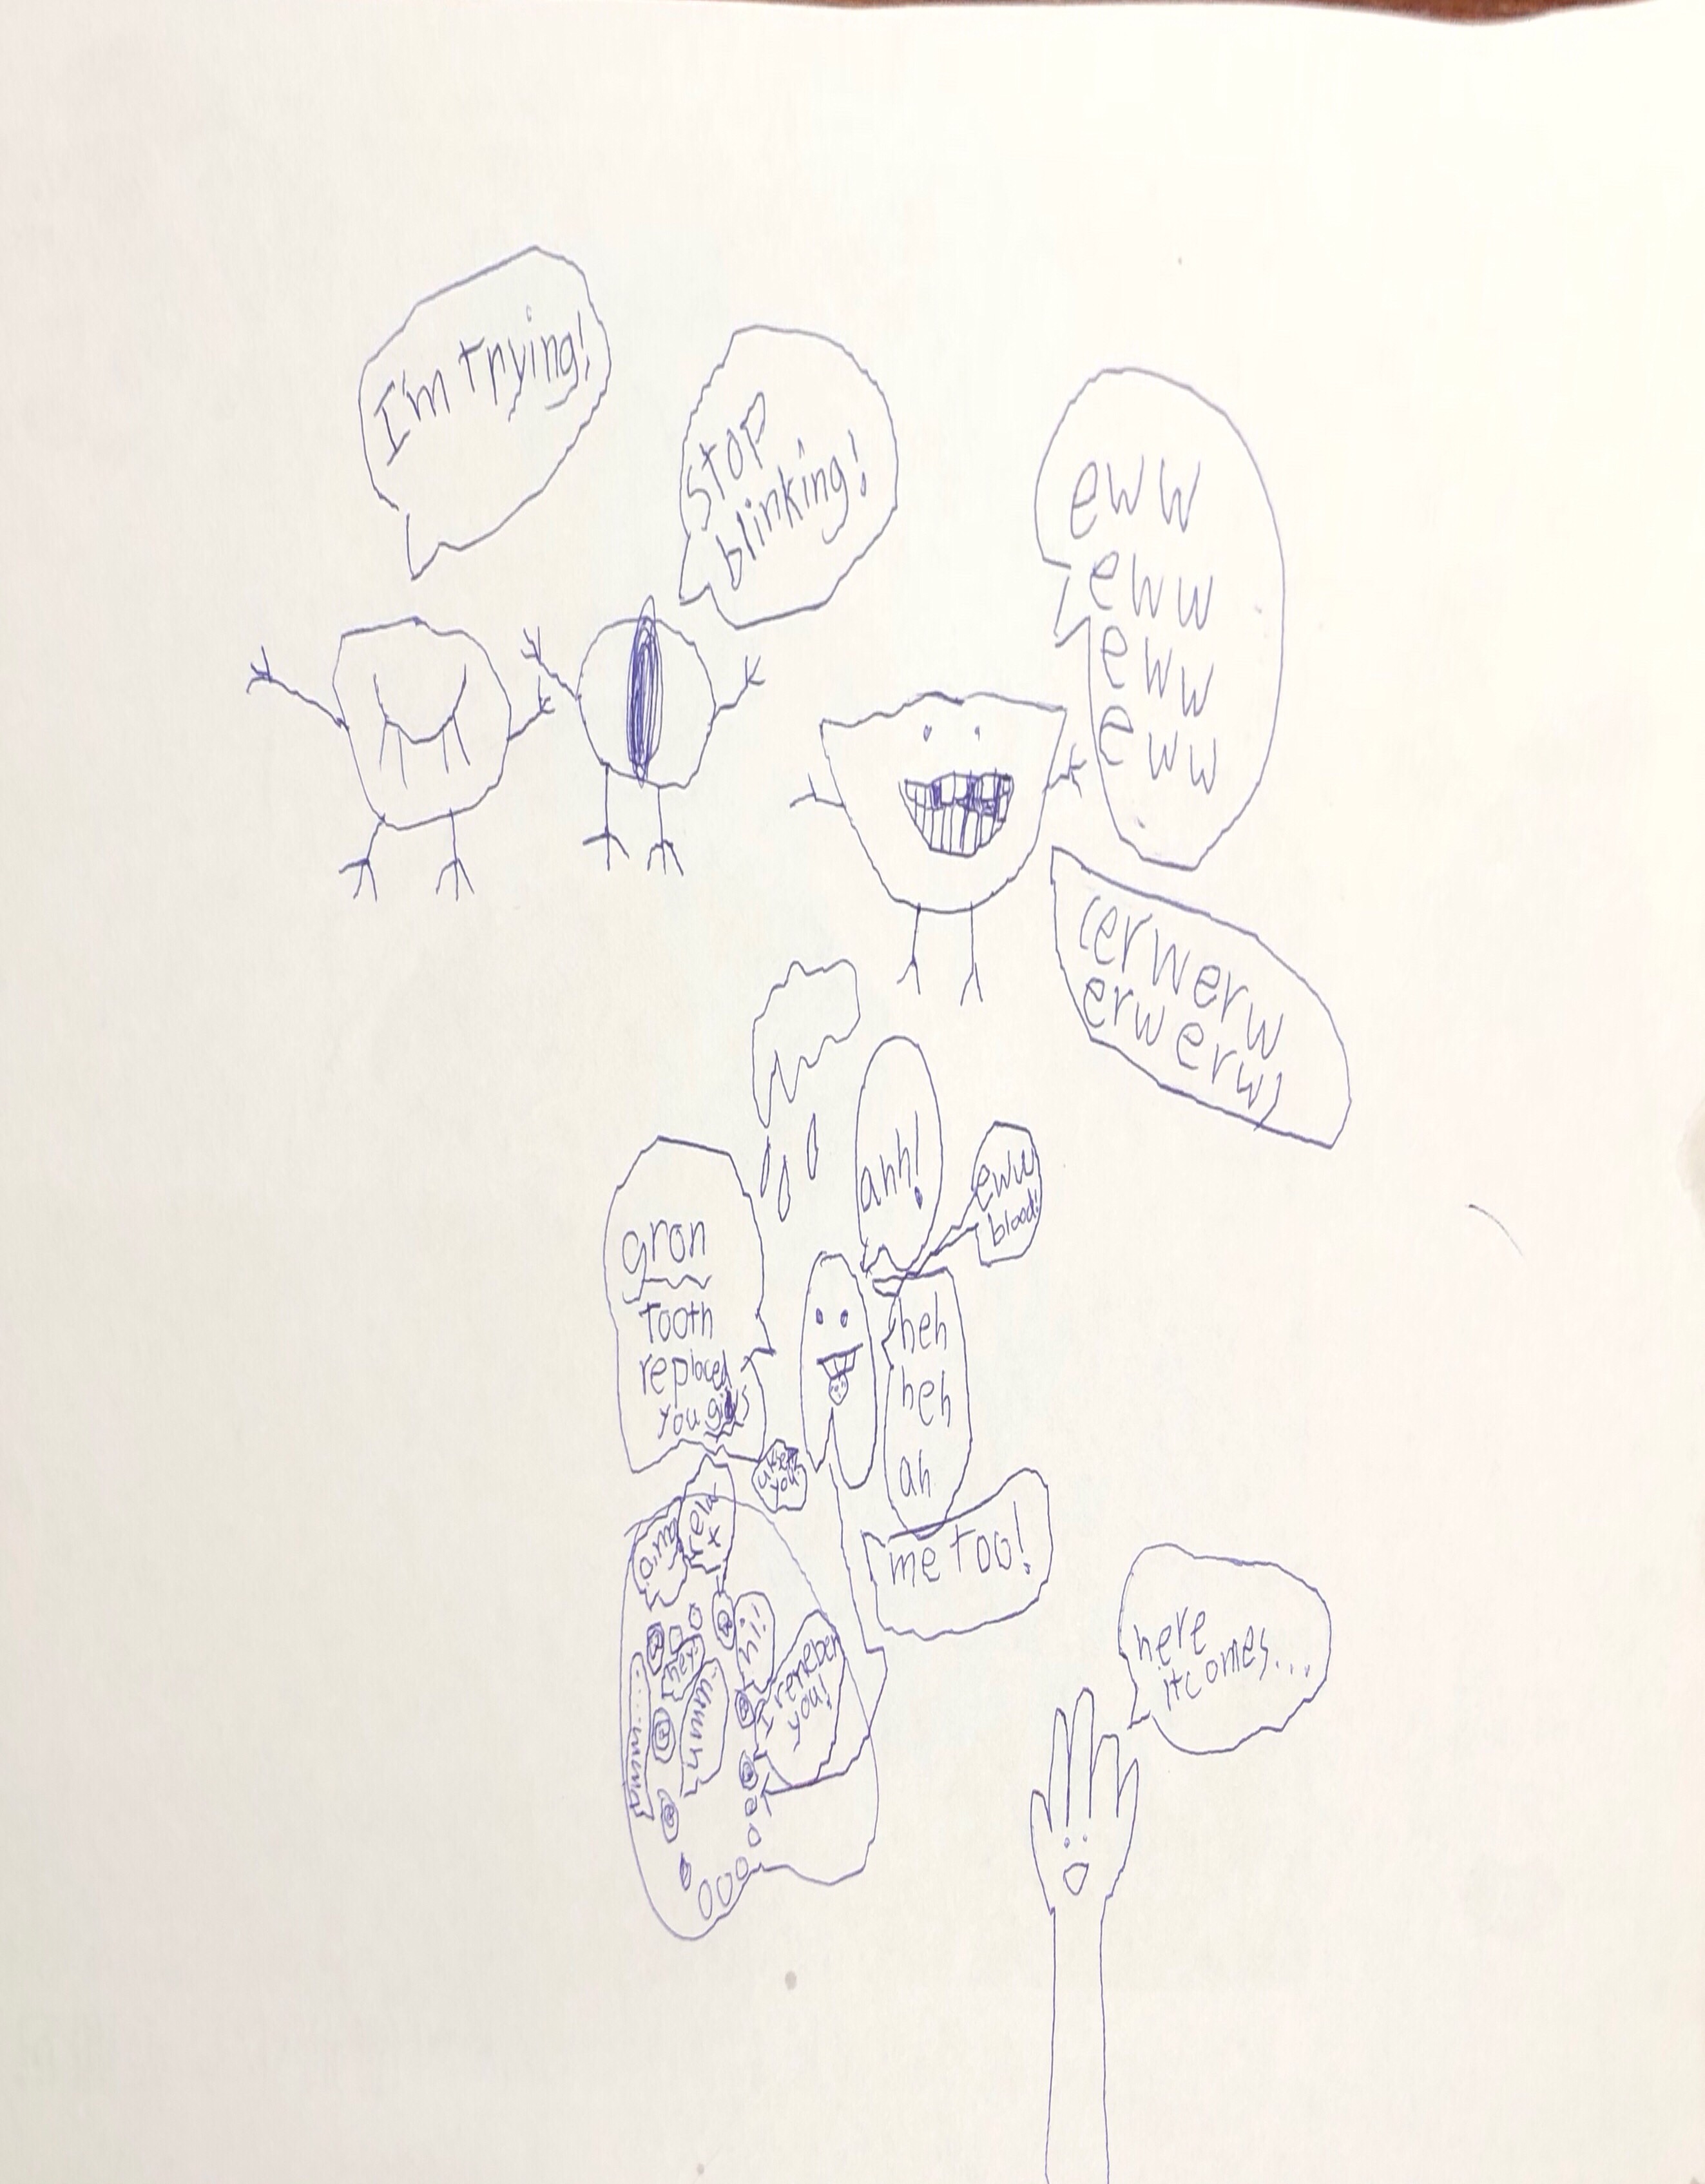 I'm trying!
stop
blinking!
eww
eww
eww
eww
(erwerw
erwerw)
ahh!
eww
blood!
gron
tooth
replaced
you
heh
heh
ah
me too!
relax
hi!
hey
I
remeber
you!
here
it comes...